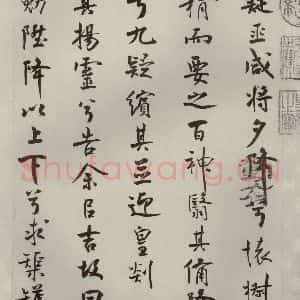 疑巫咸將夕降兮懷椒
糈而要之百神翳其備降
兮九疑繽其並迎皇剡
其揚靈兮告余㠯吉故曰
勉陞降以上下兮求榘矱
shufawang.cn